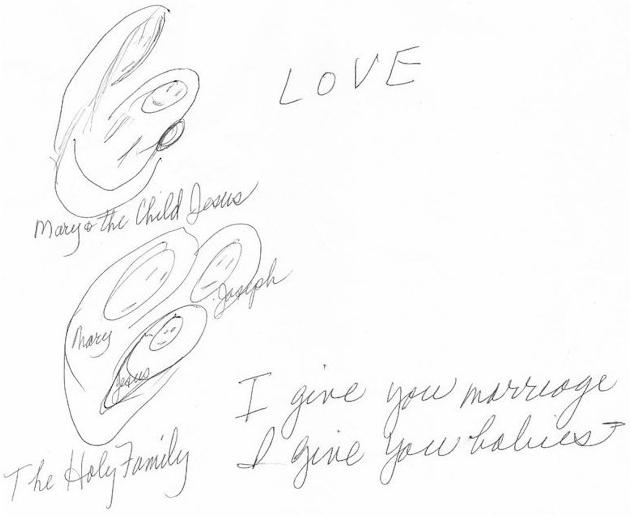 LOVE
Mary & the Child Jesus
Joseph
Mary
Jesus
I give you marriage
I give you babies
The Holy Family